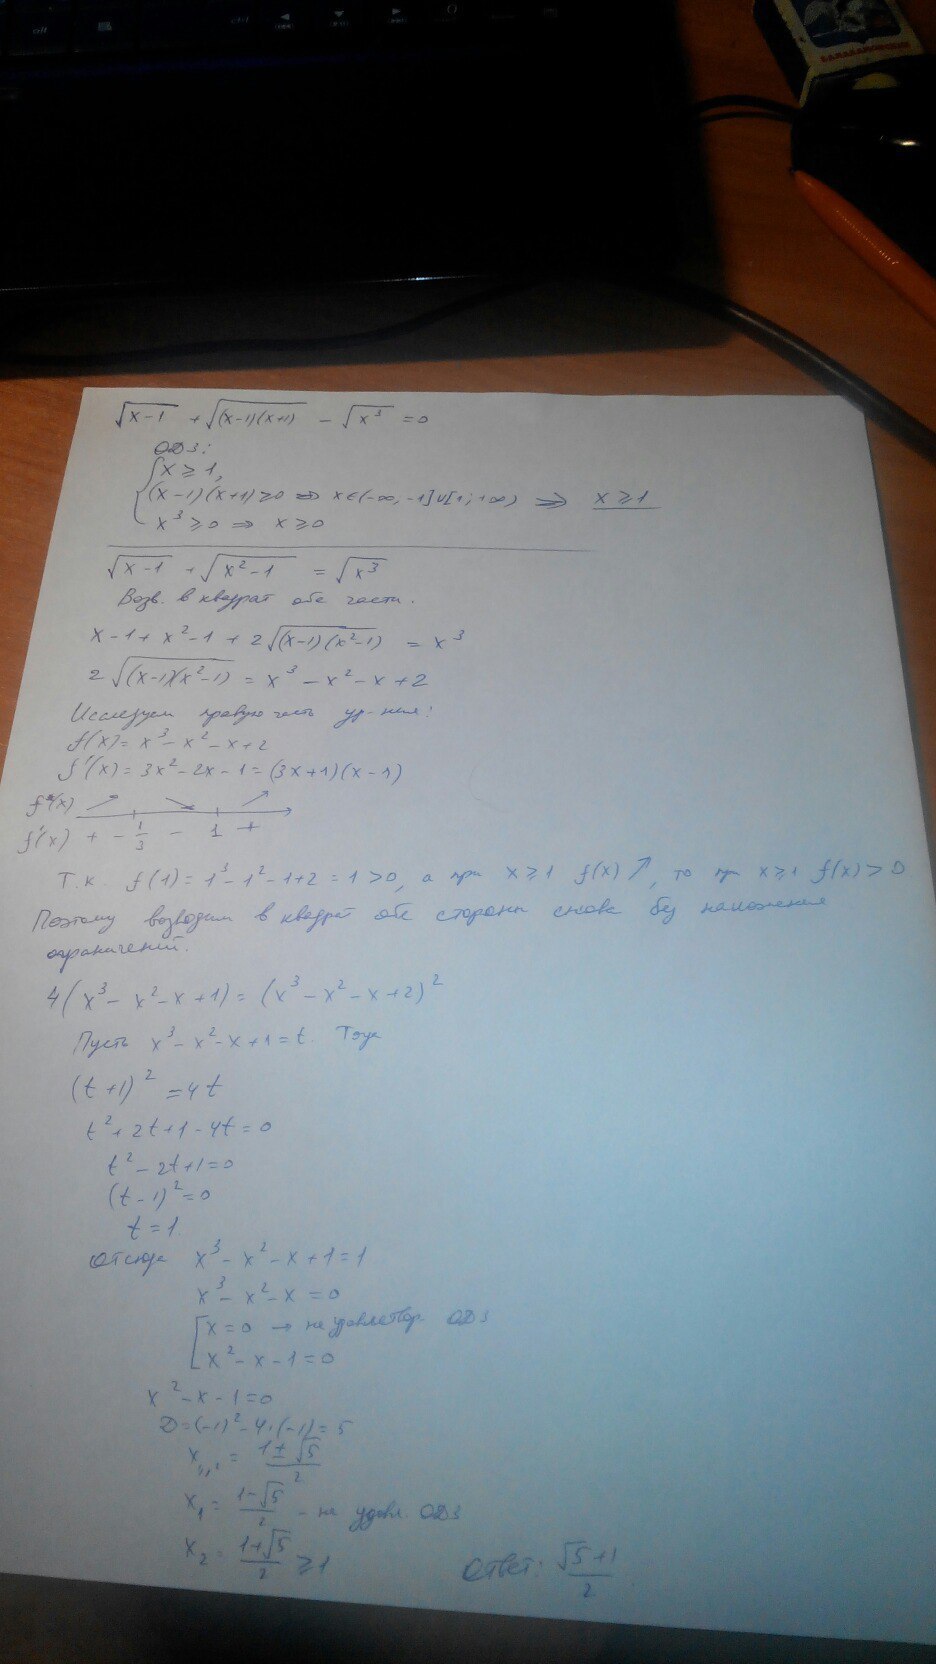 √(x-1) + √((x-1)(x+1)) - √(x³) = 0
ОДЗ:
{ x ≥ 1,
(x-1)(x+1) ≥ 0 ⇒ x∈(-∞, -1]∪[1; +∞) ⇒ x ≥ 1
x³ ≥ 0 ⇒ x ≥ 0
√(x-1) + √(x²-1) = √(x³)
Возв. в квадрат обе части.
x-1 + x²-1 + 2√((x-1)(x²-1)) = x³
2√((x-1)(x²-1)) = x³ - x² - x + 2
Исследуем правую часть ур-ния:
f(x) = x³ - x² - x + 2
f'(x) = 3x² - 2x - 1 = (3x+1)(x-1)
f(x) ↗ ↘ ↗
f'(x) + -1/3 - 1 +
Т.к. f(1) = 1³ - 1² - 1 + 2 = 1 > 0, а при x ≥ 1 f(x) ↗, то при x ≥ 1 f(x) > 0
Поэтому возводим в квадрат обе стороны снова без наложения
ограничений.
4(x³ - x² - x + 1) = (x³ - x² - x + 2)²
Пусть x³ - x² - x + 1 = t. Тогда
(t+1)² = 4t
t² + 2t + 1 - 4t = 0
t² - 2t + 1 = 0
(t-1)² = 0
t = 1.
Отсюда x³ - x² - x + 1 = 1
x³ - x² - x = 0
[ x = 0 → не удовлетвор. ОДЗ
x² - x - 1 = 0
x² - x - 1 = 0
D = (-1)² - 4·(-1) = 5
x₁,₂ = (1±√5)/2
x₁ = (1-√5)/2 - не удовл. ОДЗ
x₂ = (1+√5)/2 ≥ 1
Ответ: (√5+1)/2.